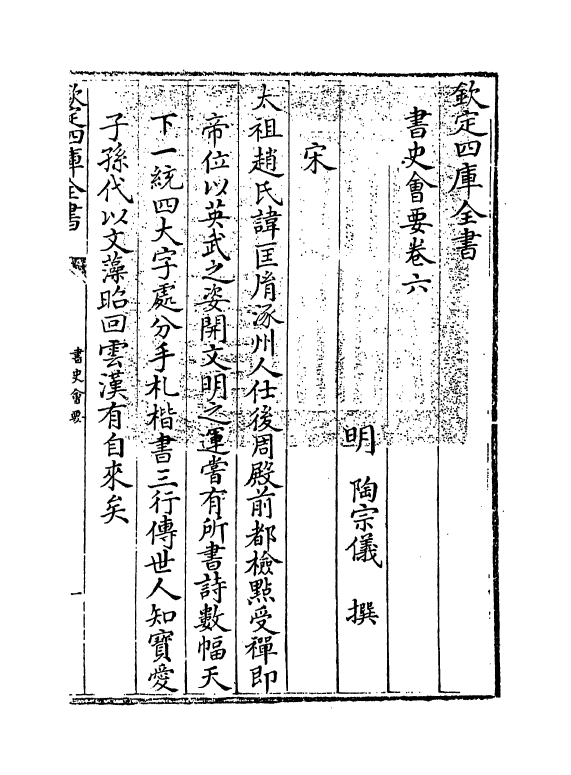 欽定四庫全書
書史會要卷六
明 陶宗儀 撰
宋
太祖趙氏諱匡𦙍涿州人仕後周殿前都檢點受禪即
帝位以英武之姿開文明之運嘗有所書詩數幅天
下一統四大字處分手札楷書三行傳世人知寶愛
子孫代以文藻昭回雲漢有自來矣
欽定四庫全書
書史會要
一